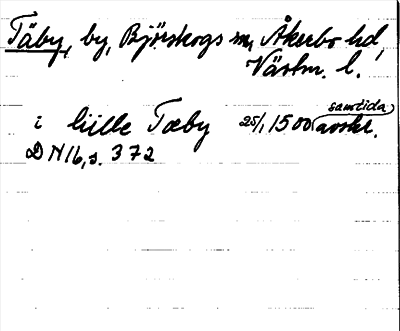 Täby, by, Björskogs sn, Åkerbo hd,
Västm. l.
i lille Tæby 25/1 1500 (samtida
avskr.
D N 16, s. 372